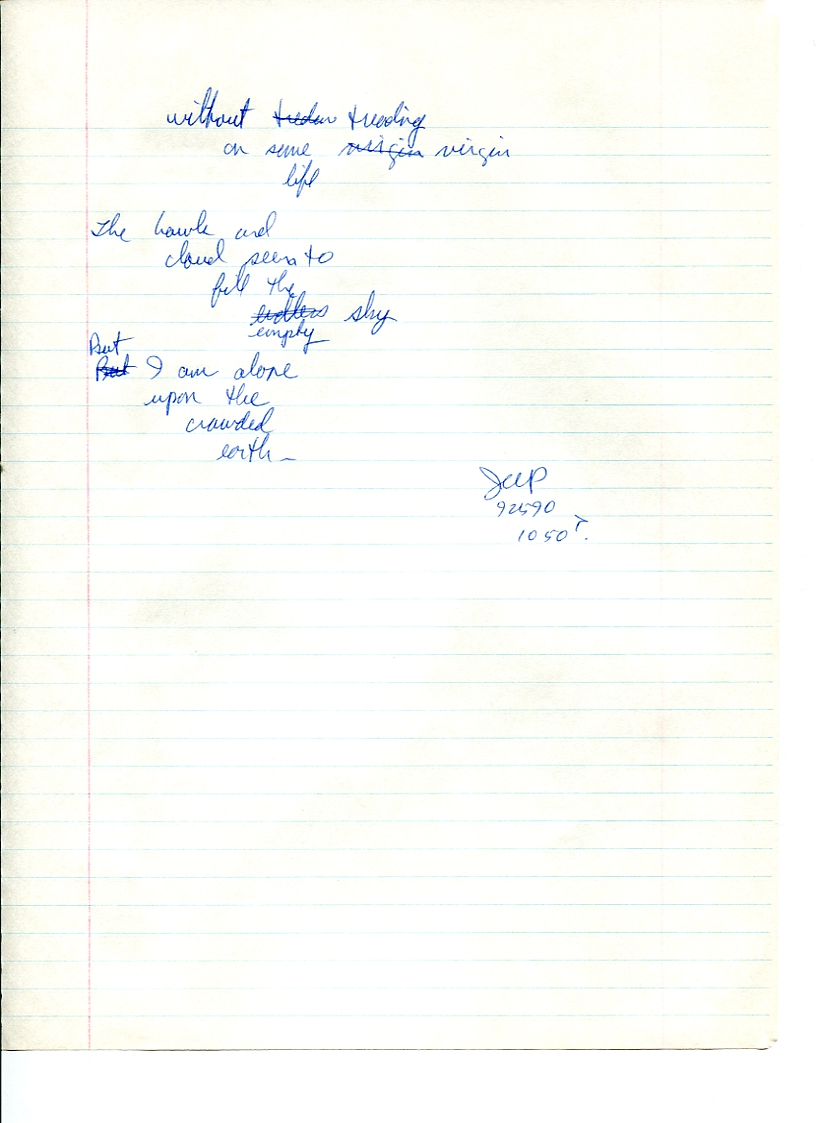 without treden treading
on some virigin virgin
life
The hawk and
cloud seem to
fill the
endless sky
empty
But
But I am alone
upon the
crowded
earth —
92590
1050